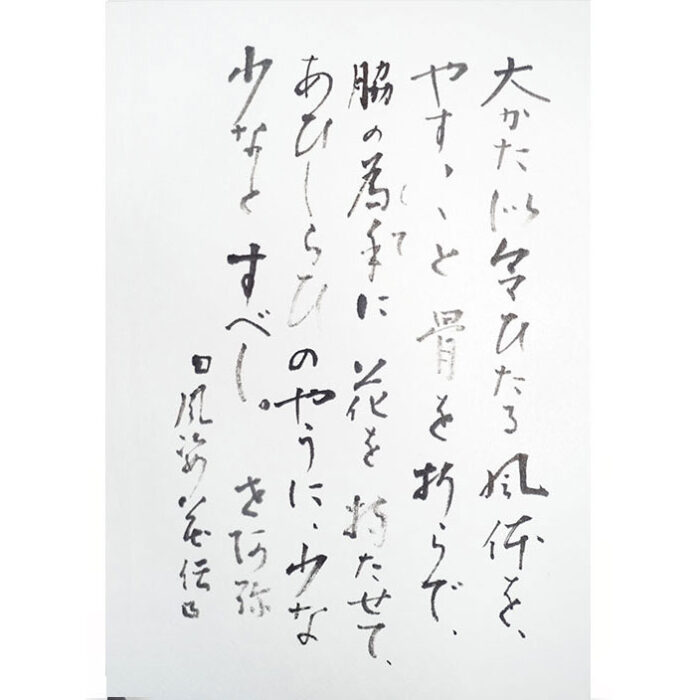 大かた似合ひたる風体を、
やすゝゝと骨を折らで、
して
脇の為手に花を持たせて、
あひしらひのやうに、少な
少なとすべし。 世阿弥
「風姿花伝」